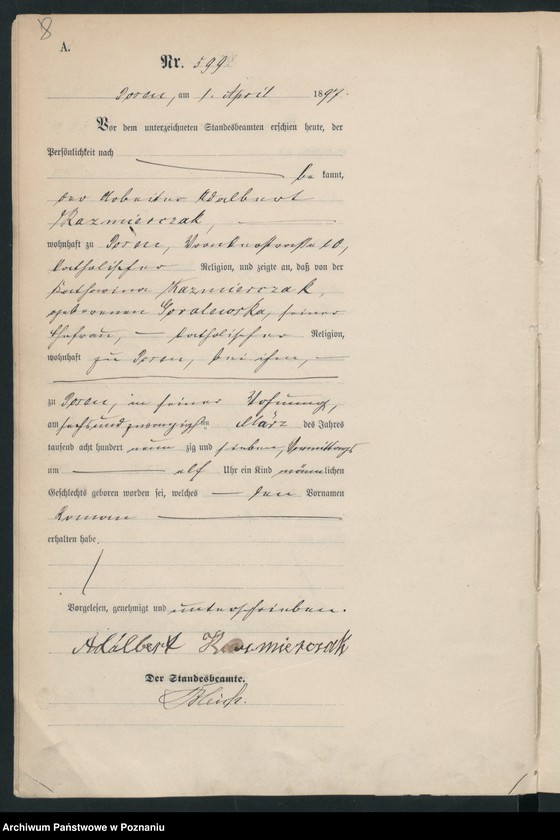 8
A.
Nr. 599
Posen, am 1. April 1897.
Vor dem unterzeichneten Standesbeamten erschien heute, der
Persönlichkeit nach
be kannt,
der Arbeiter Adalbert
Kazmierczak,
wohnhaft zu Posen, 10,
katholischer Religion, und zeigte an, daß von der
Katharina Kazmierczak,
geborenen Goralewska, seiner
Ehefrau, — katholischer Religion,
wohnhaft zu Posen, bei ihm, —
zu Posen, in seiner Wohnung,
am sechsundzwanzigsten März des Jahres
tausend acht hundert neun zig und sieben, Vormittags
um — elf Uhr ein Kind männlichen
Geschlechts geboren worden sei, welches — den Vornamen
Roman —
erhalten habe.
Vorgelesen, genehmigt und unterschrieben.
Adalbert Kazmierczak
Der Standesbeamte.
Archiwum Państwowe w Poznaniu